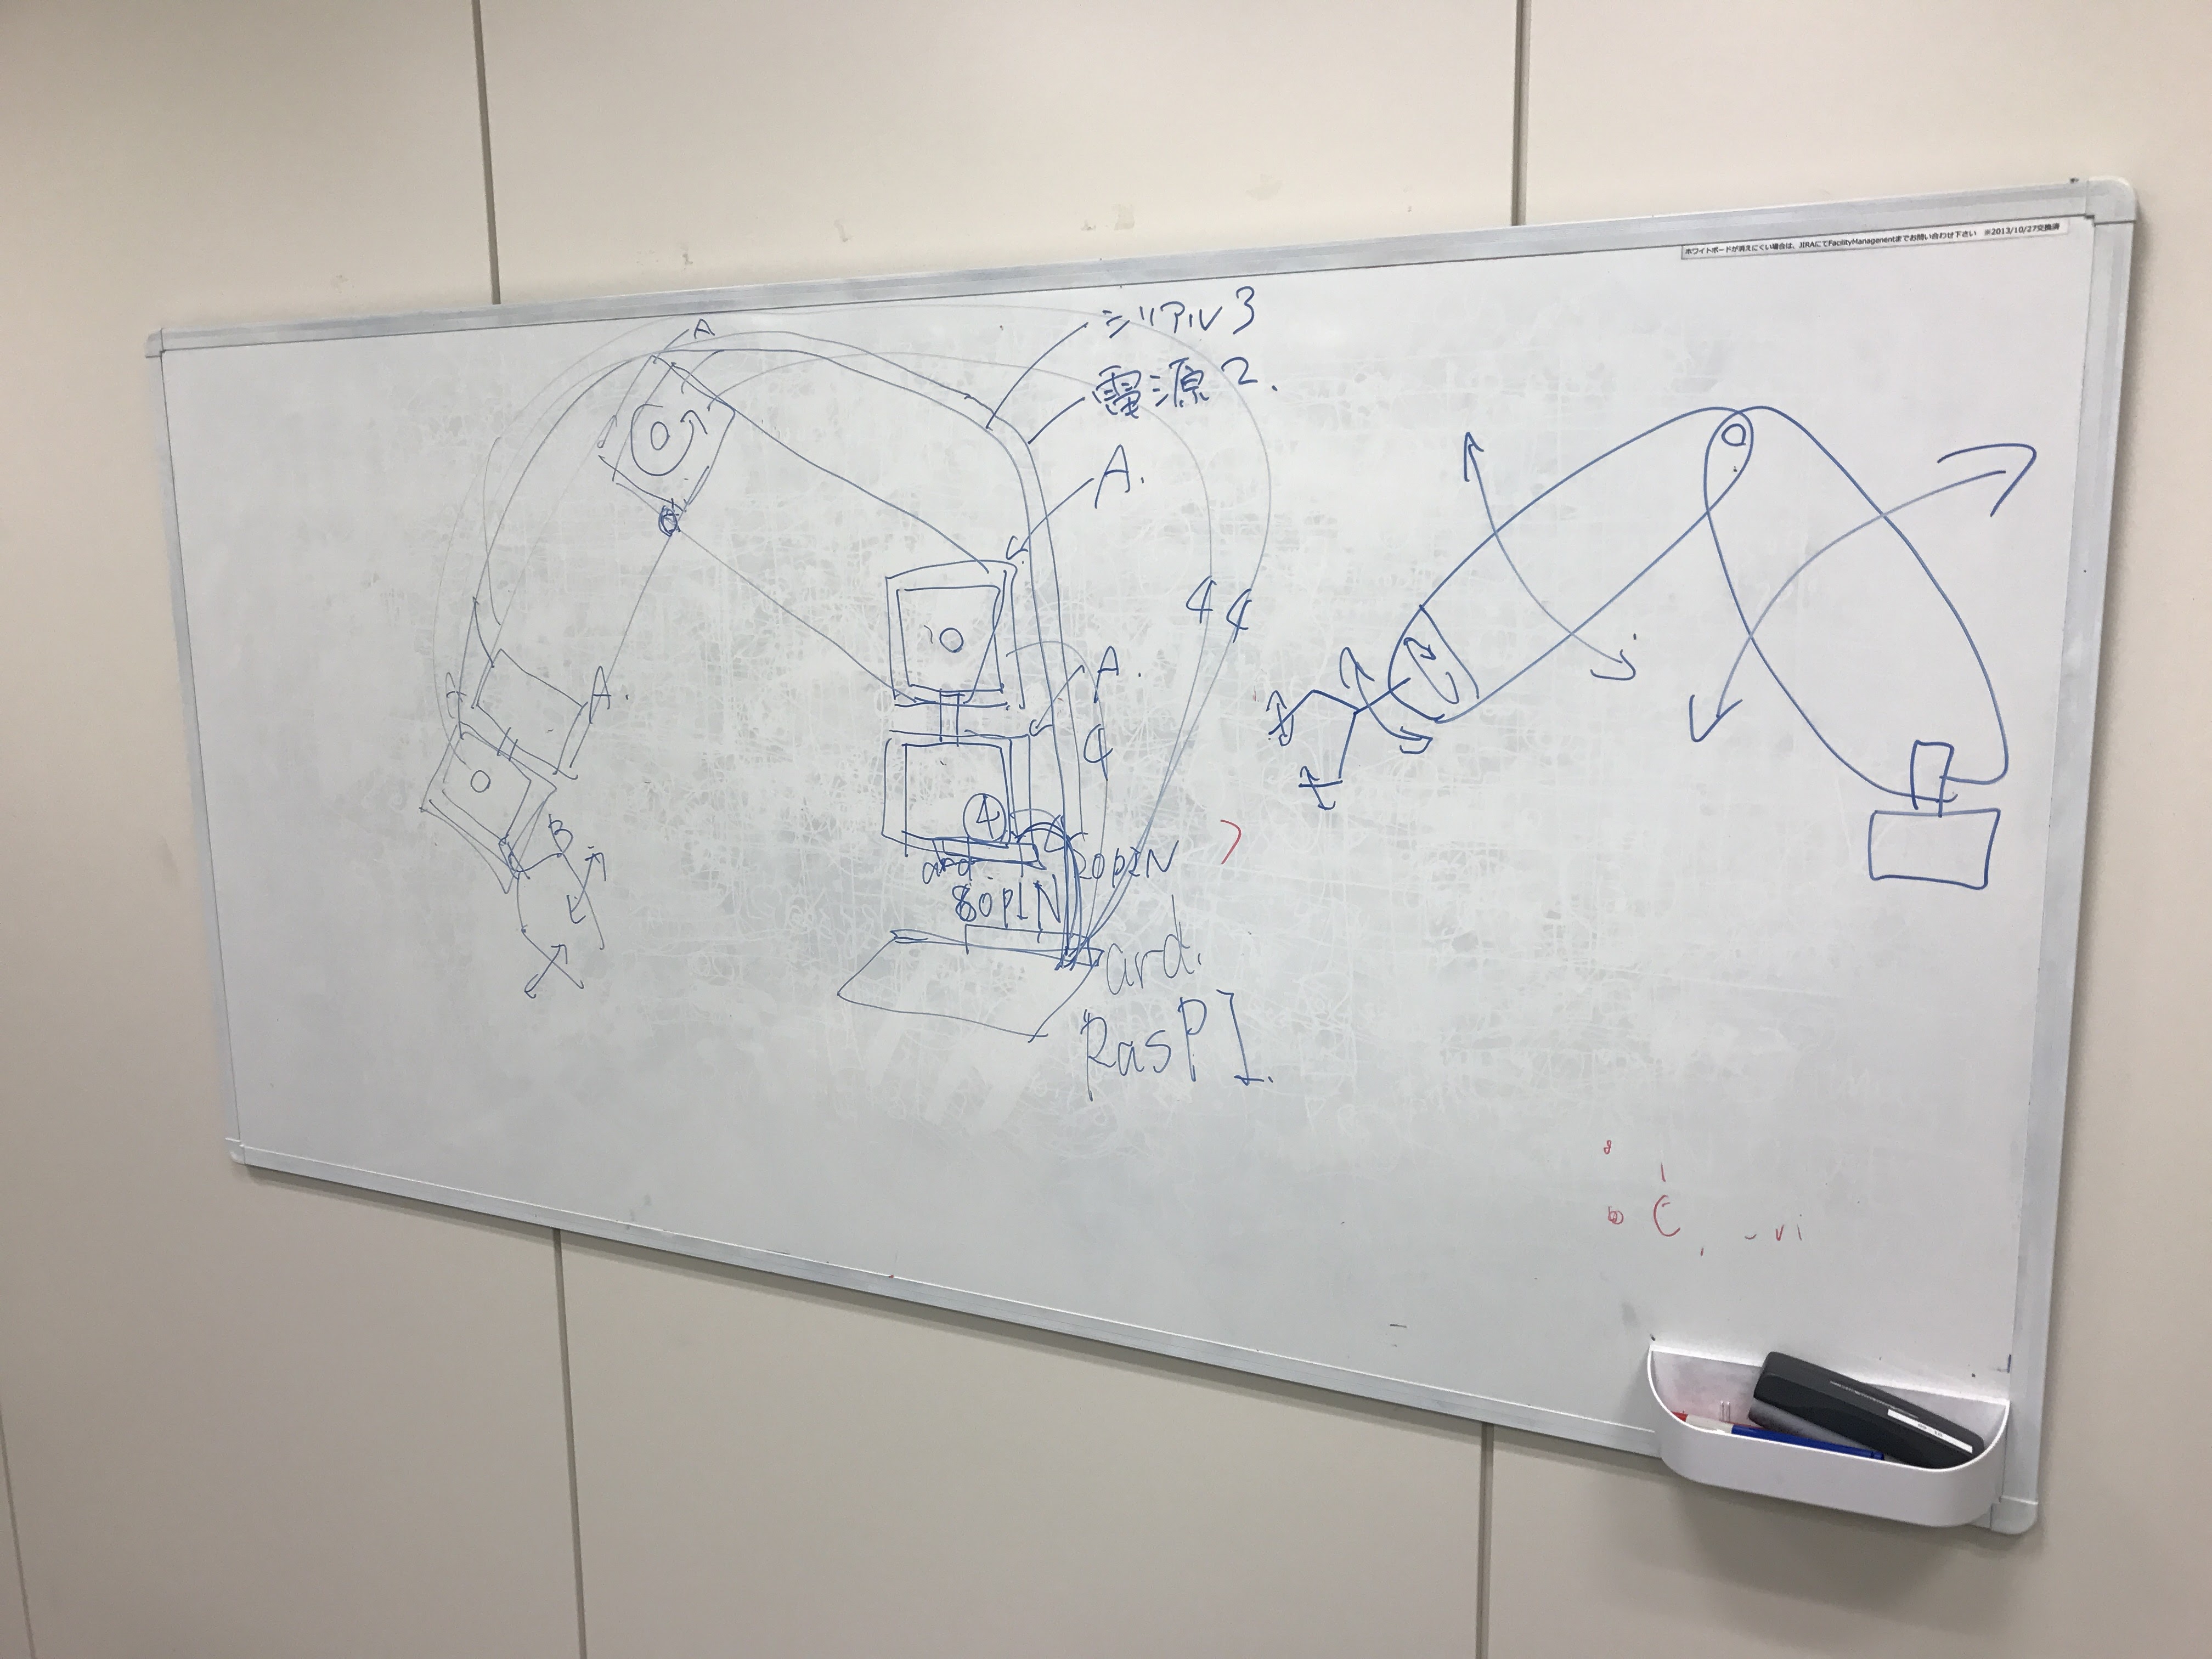 ホワイトボードが消えにくい場合は、JIRAにてFacilityManagementまでお問い合わせ下さい ※2013/10/27交換済
シリアル3
電源2.
A
A.
4 4
A.
A.
4
B
4
ard.
20PIN
80PIN
ard.
RasPI.